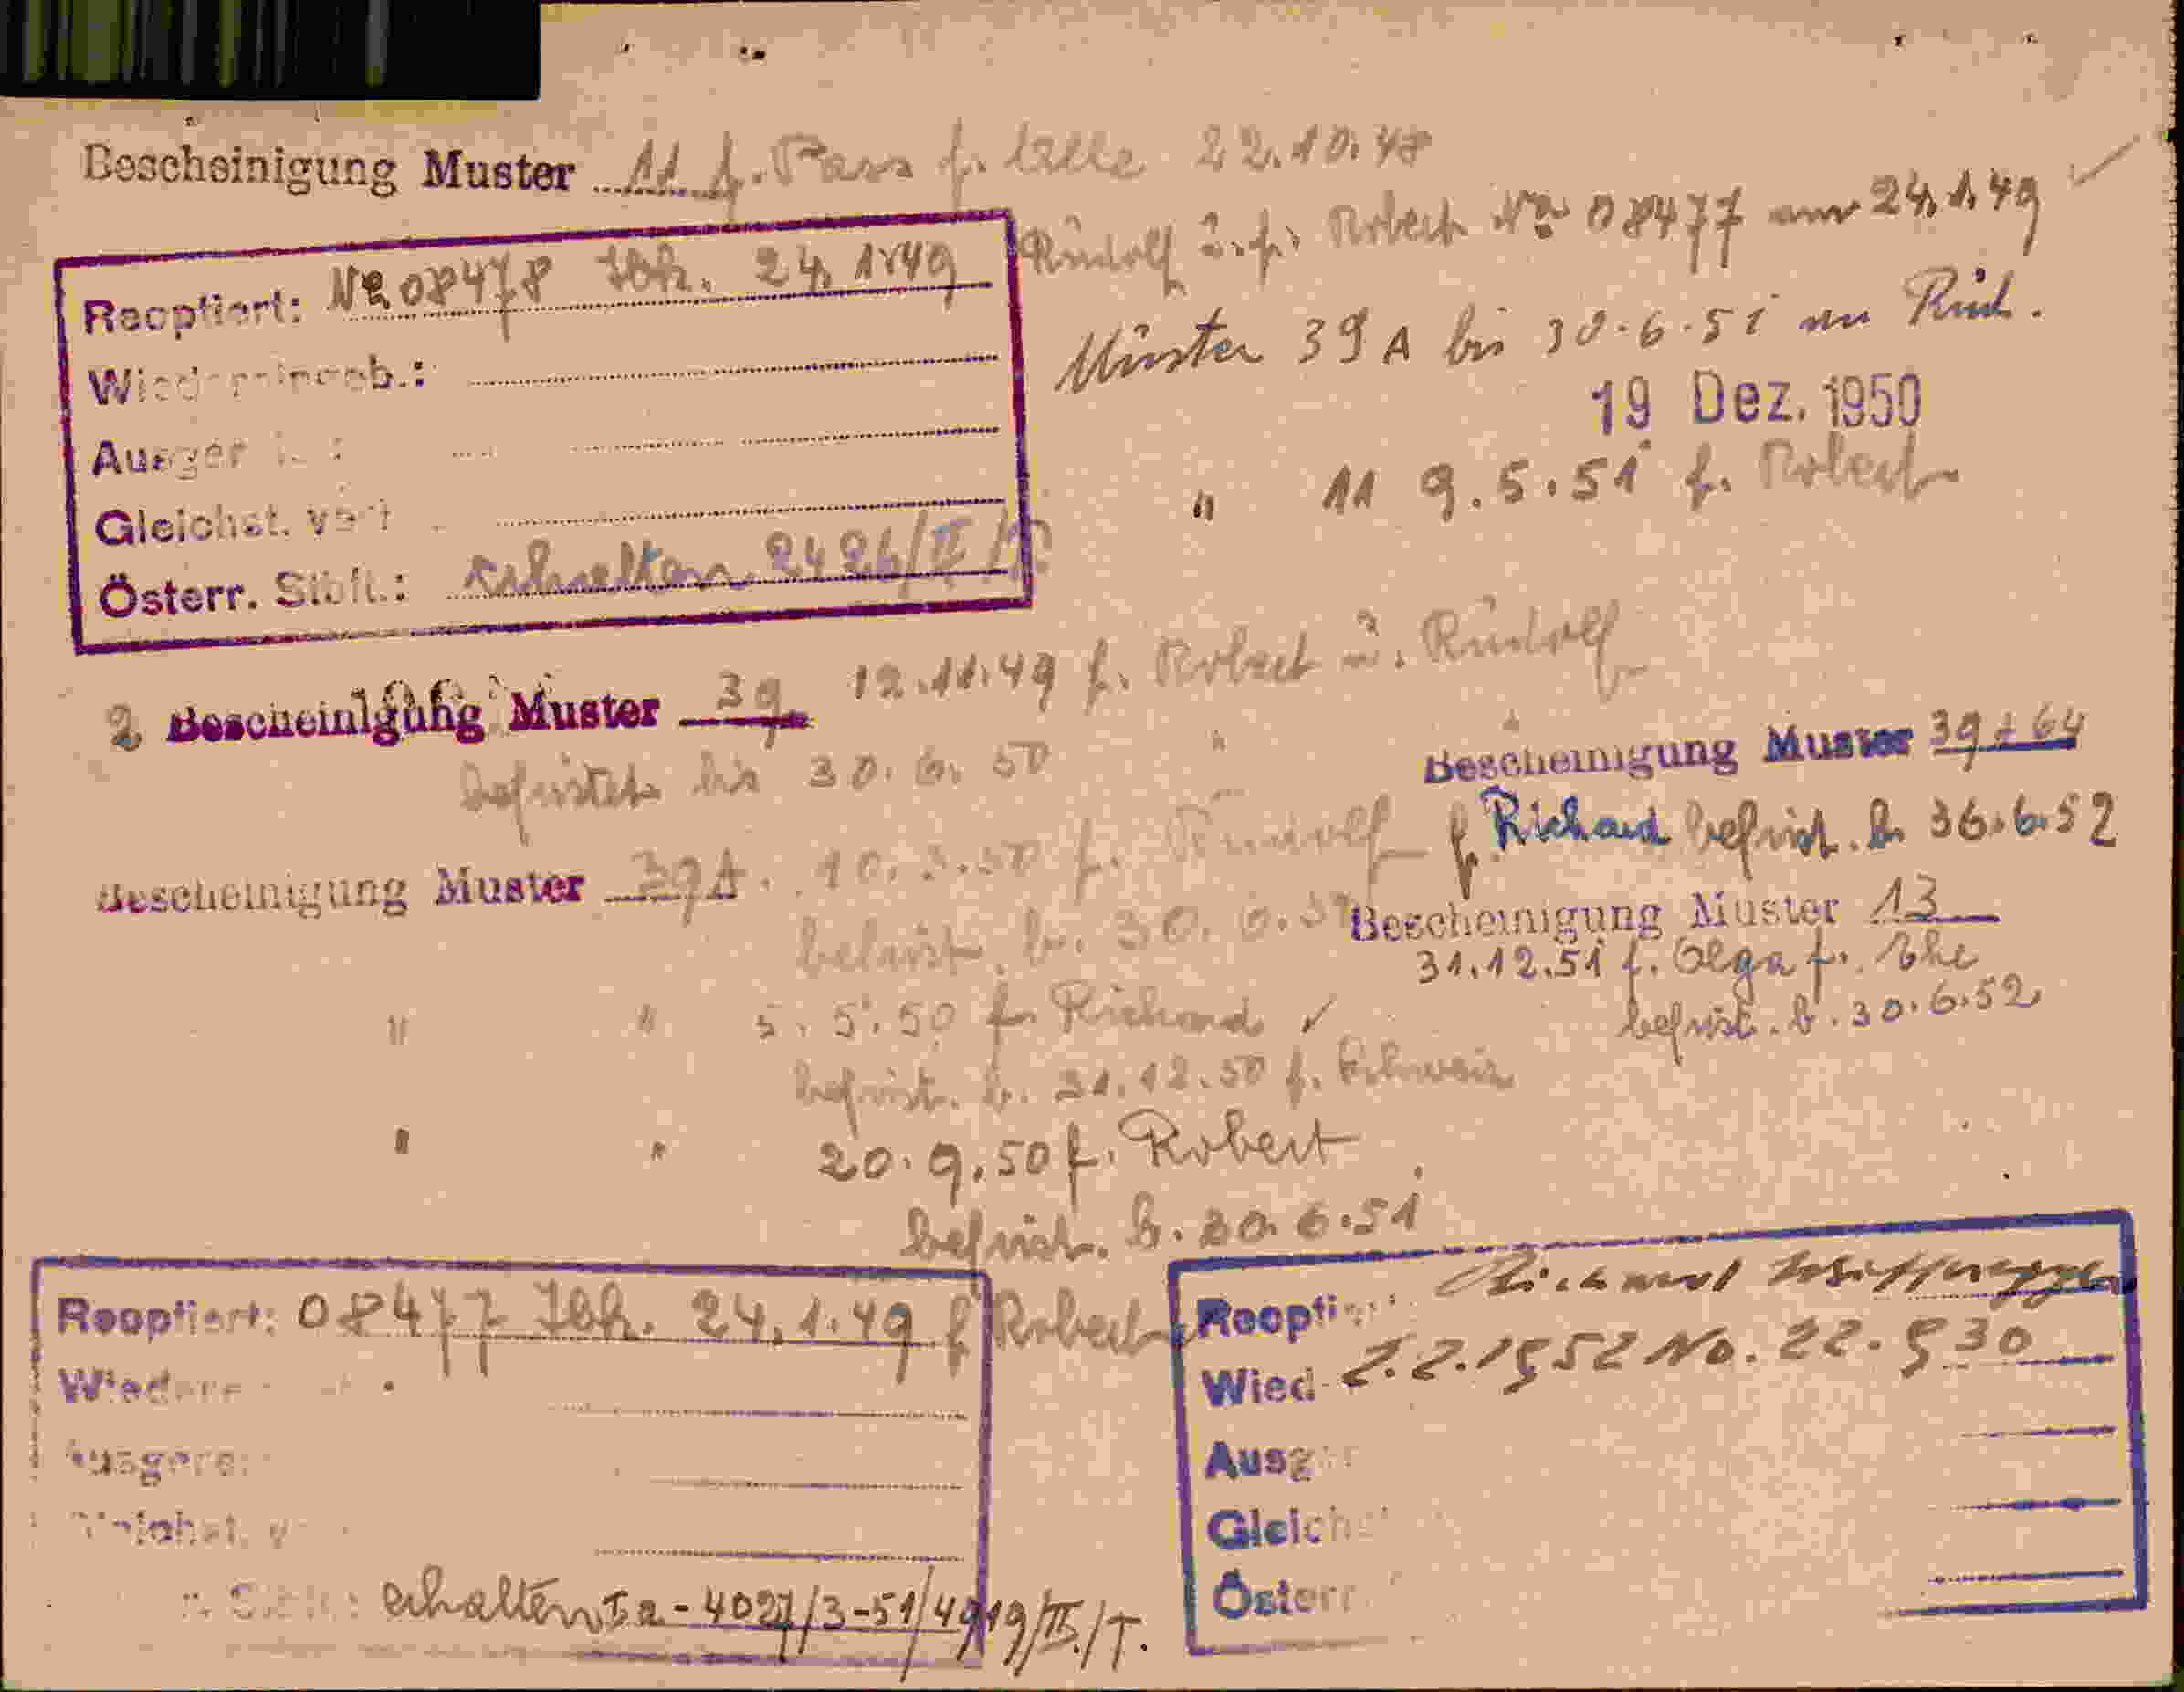 Bescheinigung Muster 11 f. Pass f. alle 22.10.48
Rudolf u. f. Robert No 08477 am 24.1.49
Reoptiert: No 08478 Ibk. 24.1.49
Wiedereingeb.:
Gleichst.
Österr. Stbft.: erhalten 2426/II/T
Muster 39 A bis 30.6.51 an Rud.
19 Dez. 1950
" 11 9.5.51 f. Robert
2 Bescheinigung Muster 39 12.11.49 f. Robert u. Rudolf
befristet bis 30.6.50 "
Bescheinigung Muster 39A. 10.3.50 f. Rudolf
befrist. b. 30.6.
" " 5.5.50 f. Richard ✓
befrist. b. 31.12.50 f. Schweiz
" " 20.9.50 f. Robert
befrist. b. 30.6.51
Bescheinigung Muster 39 + 64
f. Richard befrist. b. 36.6.52
Bescheinigung Muster 13
31.12.51 f. Olga f. Ehe
befrist. b. 30.6.52
Reoptiert: 08477 Ibk. 24.1.49 f Robert
erhalten Ia-4027/3-51/4919/II./T.
Reoptiert Richard
Wied 2.2.1952 No. 22.530
Ausg
Gleich
Österr